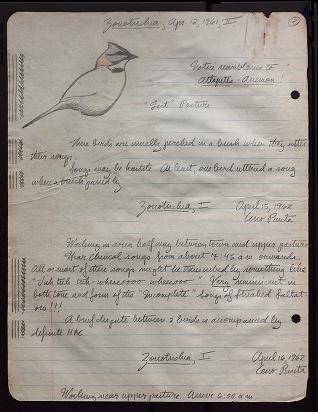 Zonotrichia, Apr 12, 1961, II
Notice resemblance to
"Atlapetes-Arremon"!
"Seet" Posture
These birds are usually perched in a bush when they utter
their songs
Songs may be hostile. At least, one bird uttered a song
when a passed by
Zonotrichia, I April 15, 1962
Cerro Punta
Working in area half way between town and upper pasture
Hear chincol songs from about 7:45 a.m. onwards.
All or most of these songs might be transcribed by something like
"Tuh teeh teeh-wheeoooo wheeooo" Very reminiscent in
both tone and form of the "Incomplete" songs of Streaked Saltat
ors!!!
A brief dispute between 2 birds is accompanied by
definite HNC
Zonotrichia, I April 16, 1962
Cerro Punta
Working near upper pasture. Arrive 6:00 a.m.